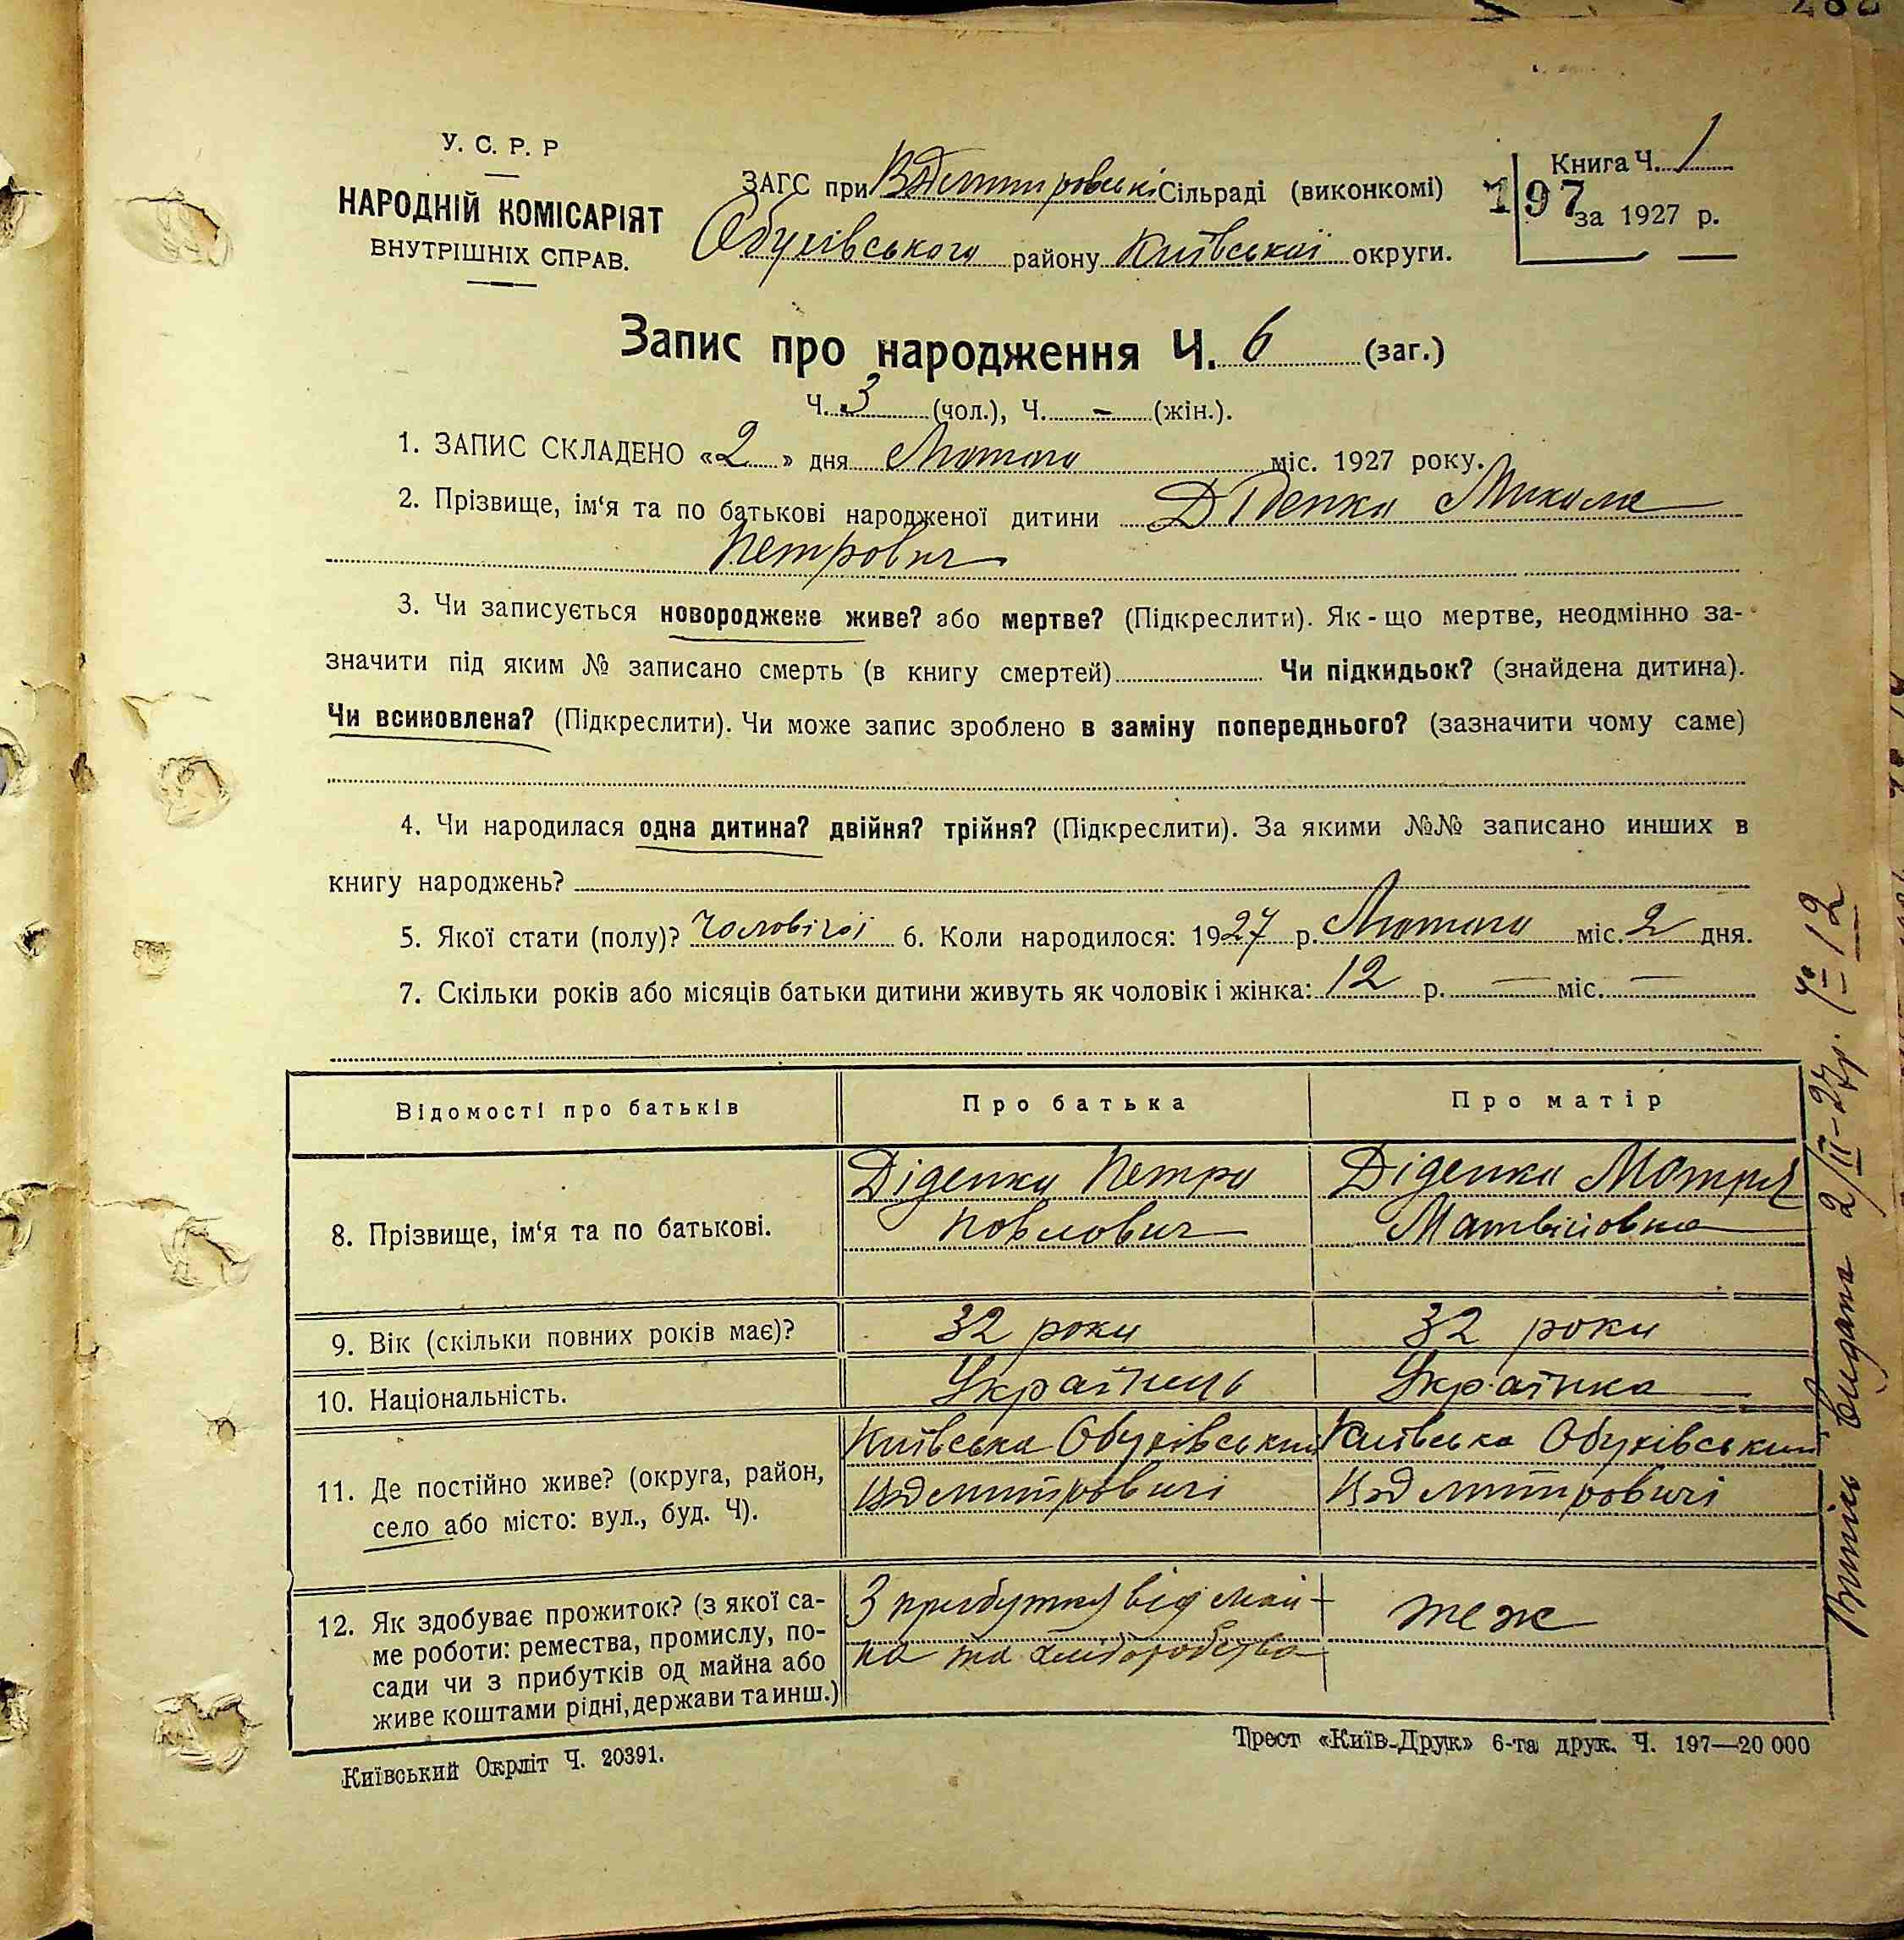 У. С. Р. Р
НАРОДНІЙ КОМІСАРІЯТ
ВНУТРІШНІХ СПРАВ.
ЗАГС при ВДмитровські Сільраді (виконкомі)
Обухівського району Київської округи.
Книга Ч. 1
197
за 1927 р.
Запис про народження Ч. 6 (заг.)
Ч. 3 (чол.), Ч. - (жін.).
1. ЗАПИС СКЛАДЕНО «2» дня Лютого міс. 1927 року.
2. Прізвище, ім'я та по батькові народженої дитини Діденко Микола
Петрович
3. Чи записується новороджене живе? або мертве? (Підкреслити). Як-що мертве, неодмінно за-
значити під яким № записано смерть (в книгу смертей) Чи підкидьок? (знайдена дитина).
Чи всиновлена? (Підкреслити). Чи може запис зроблено в заміну попереднього? (зазначити чому саме)
4. Чи народилася одна дитина? двійня? трійня? (Підкреслити). За якими №№ записано инших в
книгу народжень?
5. Якої стати (полу)? Чоловічої 6. Коли народилося: 1927 р. Лютого міс. 2 дня.
7. Скільки років або місяців батьки дитини живуть як чоловік і жінка: 12 р. — міс. —
Відомості про батьків Про батька Про матір
8. Прізвище, ім'я та по батькові.
Діденко Петро
Повлович
Діденко Мотря
Матвіївна
9. Вік (скільки повних років має)? 32 роки 32 роки
10. Національність. Українець Українка
11. Де постійно живе? (округа, район,
село або місто: вул., буд. Ч).
Київська Обухівський
Київська Обухівський
12. Як здобуває прожиток? (з якої са-
ме роботи: ремества, промислу, по-
сади чи з прибутків од майна або
живе коштами рідні, держави та инш.)
З прибутку від май-
на та хліборобства
теж
Київський Окрліт Ч. 20391.
Трест «Київ-Друк» 6-та друк. Ч. 197—20 000
Випись видана 2/II-27р. Ч 12